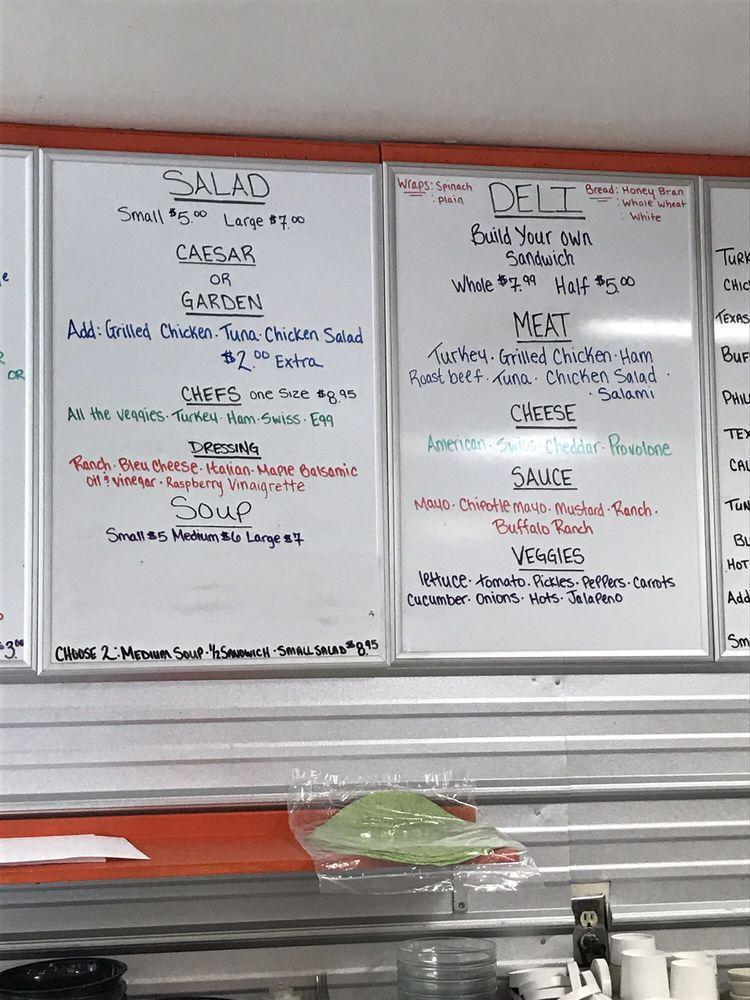 SALAD
Small $5.00 Large $7.00
CAESAR
OR
GARDEN
Add: Grilled Chicken · Tuna · Chicken Salad
$2.00 Extra
CHEFS one Size $8.95
All the veggies · Turkey · Ham · Swiss · Egg
DRESSING
Ranch · Bleu Cheese · Italian · Maple Balsamic
oil & vinegar · Raspberry Vinaigrette
SOUP
Small $5 Medium $6 Large $7
CHOOSE 2: MEDIUM SOUP · 1/2 SANDWICH · SMALL SALAD $8.95
OR
$3.00
Wraps: Spinach
: plain
DELI
Bread: Honey Bran
: Whole Wheat
: White
Build Your own
Sandwich
Whole $7.99 Half $5.00
MEAT
Turkey · Grilled Chicken · Ham
Roast beef · Tuna · Chicken Salad ·
· Salami
CHEESE
American · Swiss · Cheddar · Provolone
SAUCE
Mayo · Chipotle mayo · Mustard · Ranch ·
Buffalo Ranch
VEGGIES
lettuce · tomato · Pickles · Peppers · Carrots
Cucumber · Onions · Hots · Jalapeno
TURK
CHIC
TEXAS
BUF
PHIL
TEX
CAL
TUN
BL
HOT
Add
Sm